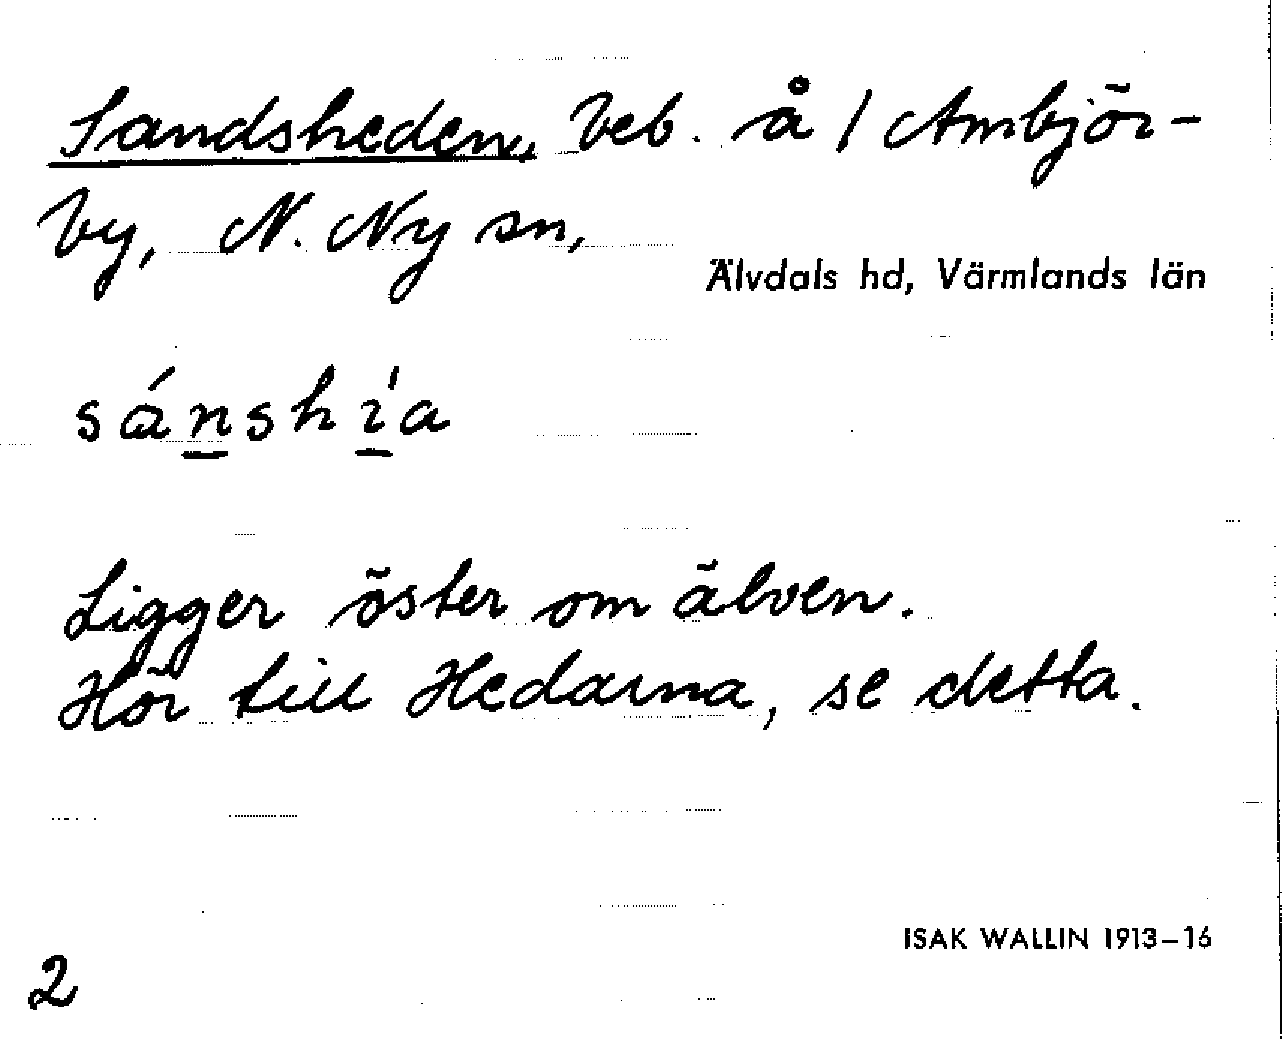 Sandsheden, beb. å / Ambjör-
by, N. Ny sn,
Älvdals hd, Värmlands län
sánshí̱a
Ligger öster om älven.
Hör till Hedarna, se detta.
ISAK WALLIN 1913–16
2